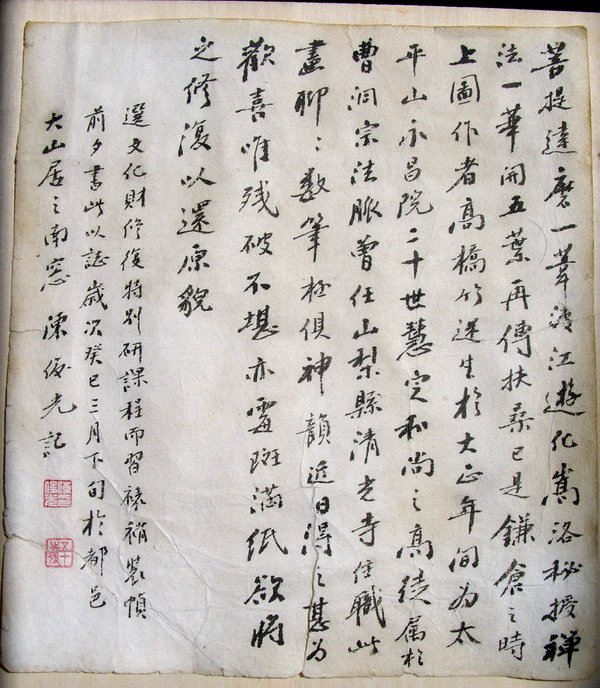 菩提達磨一葦渡江遊化嵩洛秘授禪
法一華開五葉再傳扶桑已是鎌倉之時
上圖作者高橋竹迷生於大正年間為太
平山永昌院二十世慧定和尚之高徒属於
曹洞宗法脈曾任山梨縣清光寺住職此
畫聊聊數筆極俱神韻近日得之甚為
歡喜唯残破不堪亦霉斑滿紙欲將
之修復以還原貌
選文化財修復特別研課程而習裱褙裝幀
前夕書此以誌歲次癸巳三月下旬於都邑
大山居之南窓 陳俊光記